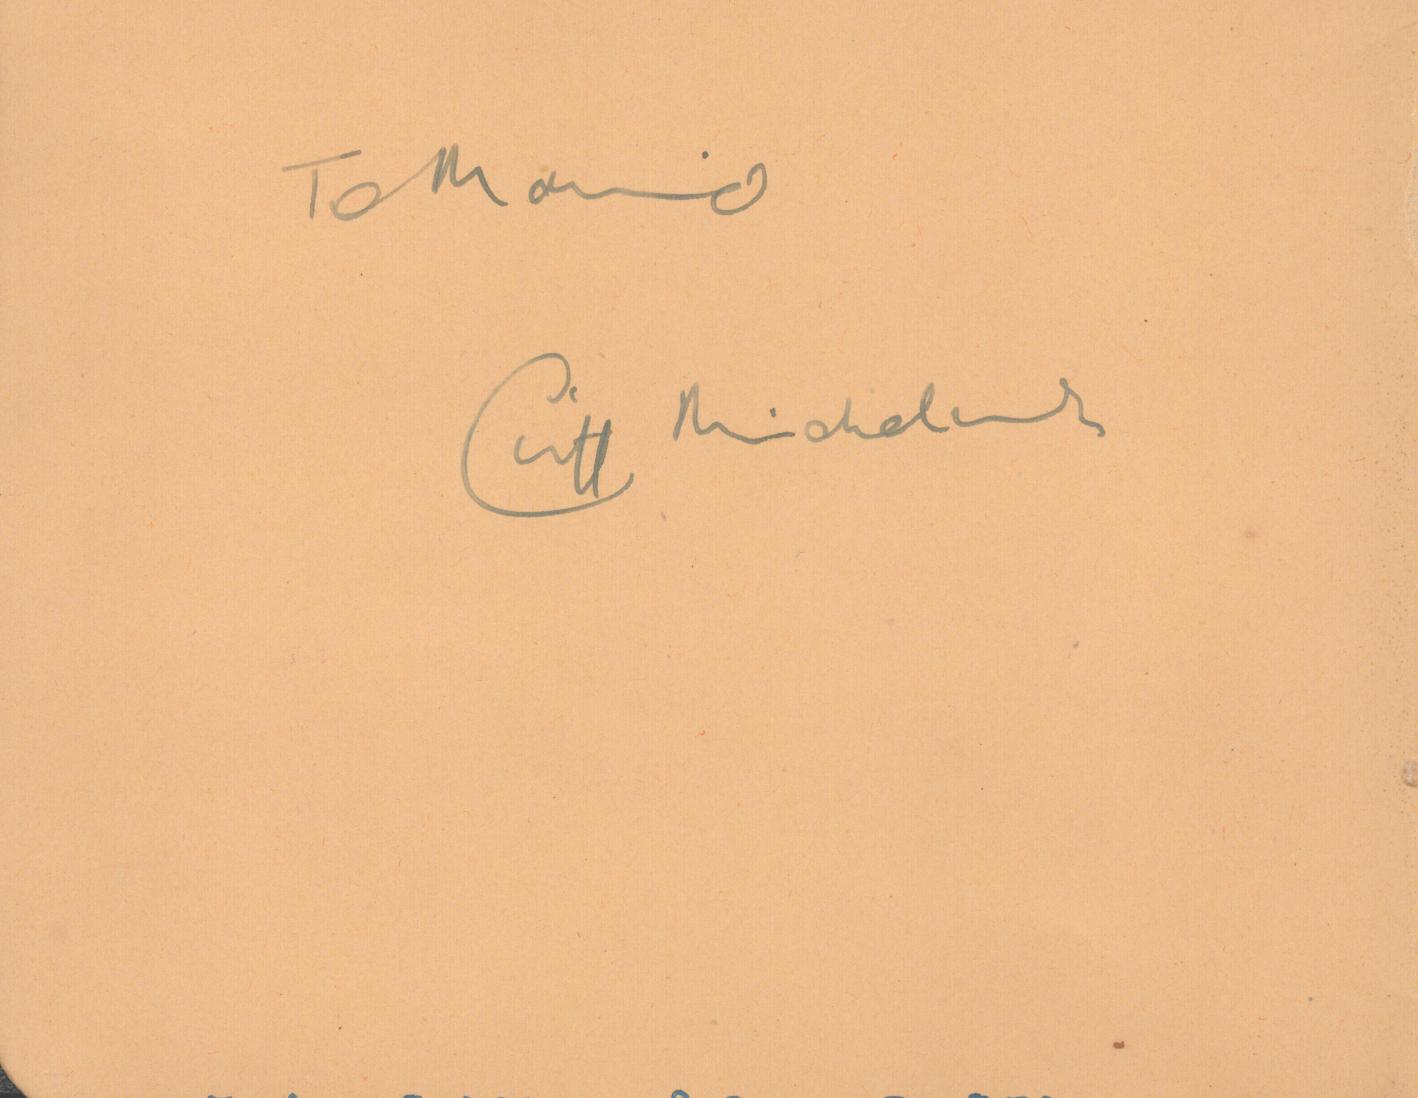 To Mario
Cliff Michelmore